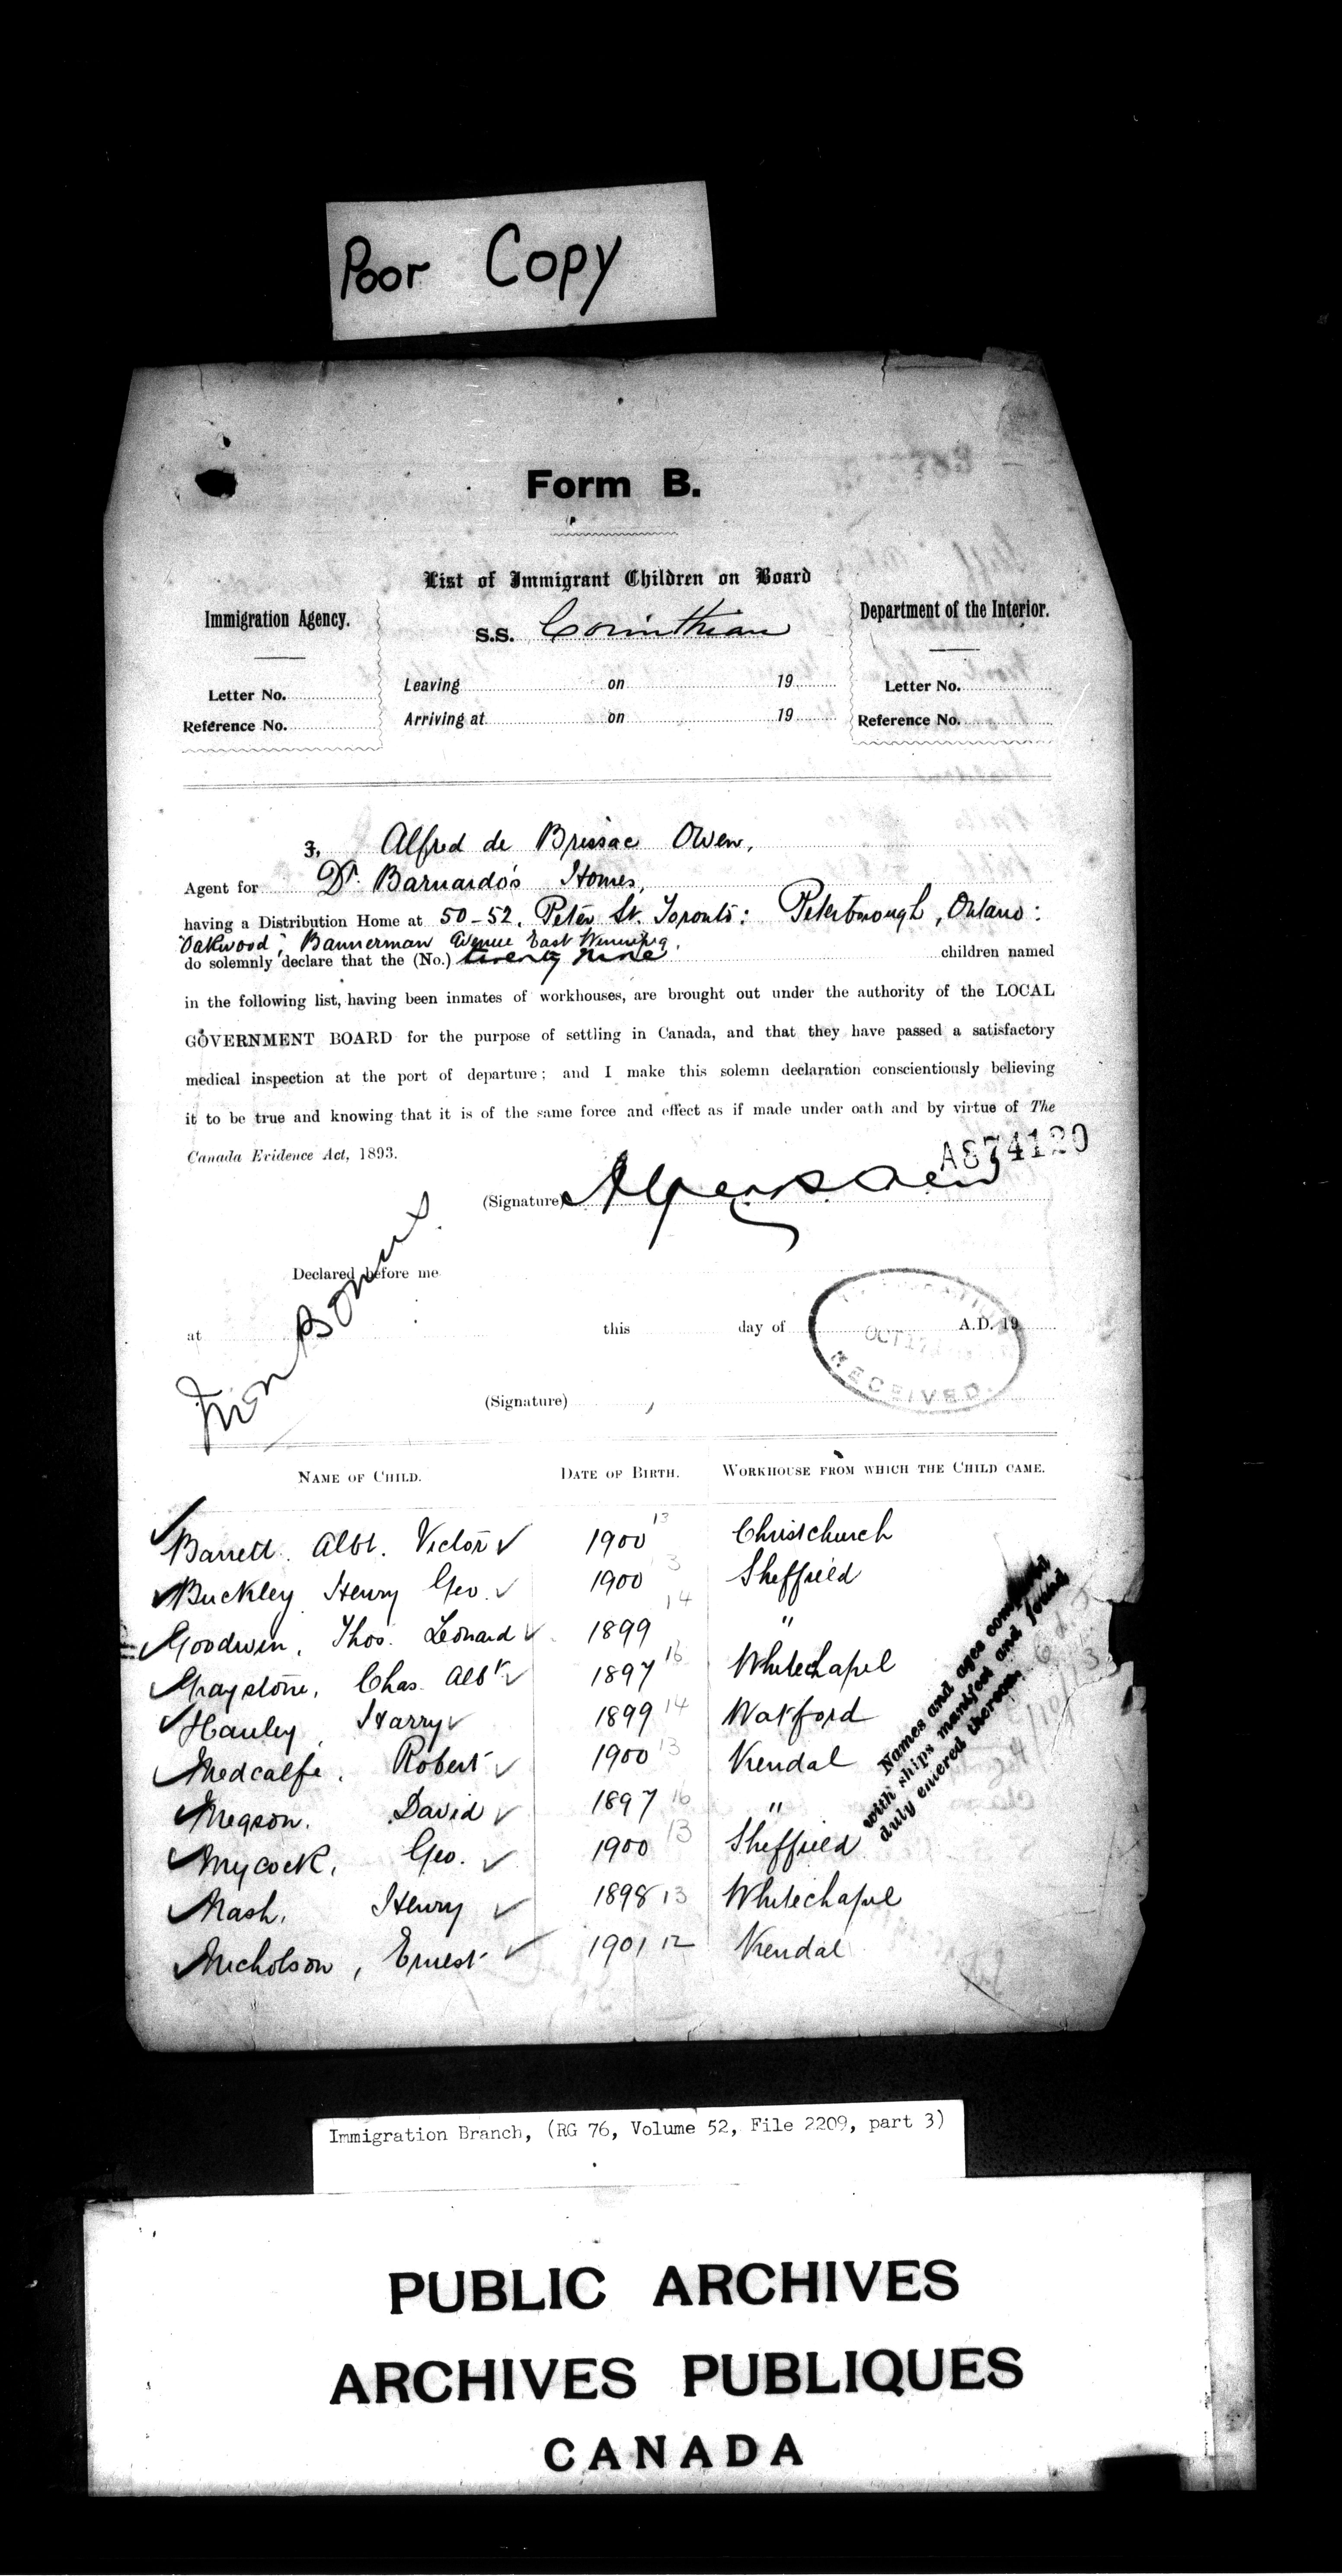 Poor Copy
Form B.
List of Immigrant Children on Board
Immigration Agency.
S.S. Corinthian
Department of the Interior.
Letter No.
Leaving on 19
Letter No.
Reference No.
Arriving at on 19
Reference No.
I, Alfred de Brissac Owen,
Agent for Dr. Barnardo's Homes,
having a Distribution Home at 50-52, Peter St. Toronto: Peterborough, Ontario:
"Oakwood", Bannerman Avenue East Winnipeg.
do solemnly declare that the (No.) twenty nine children named
in the following list, having been inmates of workhouses, are brought out under the authority of the LOCAL
GOVERNMENT BOARD for the purpose of settling in Canada, and that they have passed a satisfactory
medical inspection at the port of departure; and I make this solemn declaration conscientiously believing
it to be true and knowing that it is of the same force and effect as if made under oath and by virtue of The
Canada Evidence Act, 1893.
A874120
(Signature)
Declared before me
at this day of A.D. 19
OCT 17
RECEIVED.
(Signature)
Non Bonus.
NAME OF CHILD. DATE OF BIRTH. WORKHOUSE FROM WHICH THE CHILD CAME.
Barrett. Albt. Victor 1900 13 Christchurch
Buckley Henry Geo. 1900 13 Sheffield
Goodwin, Thos. Leonard 1899 14 "
Graystone, Chas. Albt. 1897 16 Whitechapel
Hanley, Harry 1899 14 Watford
Medcalfe, Robert 1900 13 Kendal
Megson. David 1897 16 "
Mycock, Geo. 1900 13 Sheffield
Nash, Henry 1898 13 Whitechapel
Nicholson, Ernest 1901 12 Kendal
Names and ages compared
with ships manifest and found
duly entered thereon.
Immigration Branch, (RG 76, Volume 52, File 2209, part 3)
PUBLIC ARCHIVES
ARCHIVES PUBLIQUES
CANADA